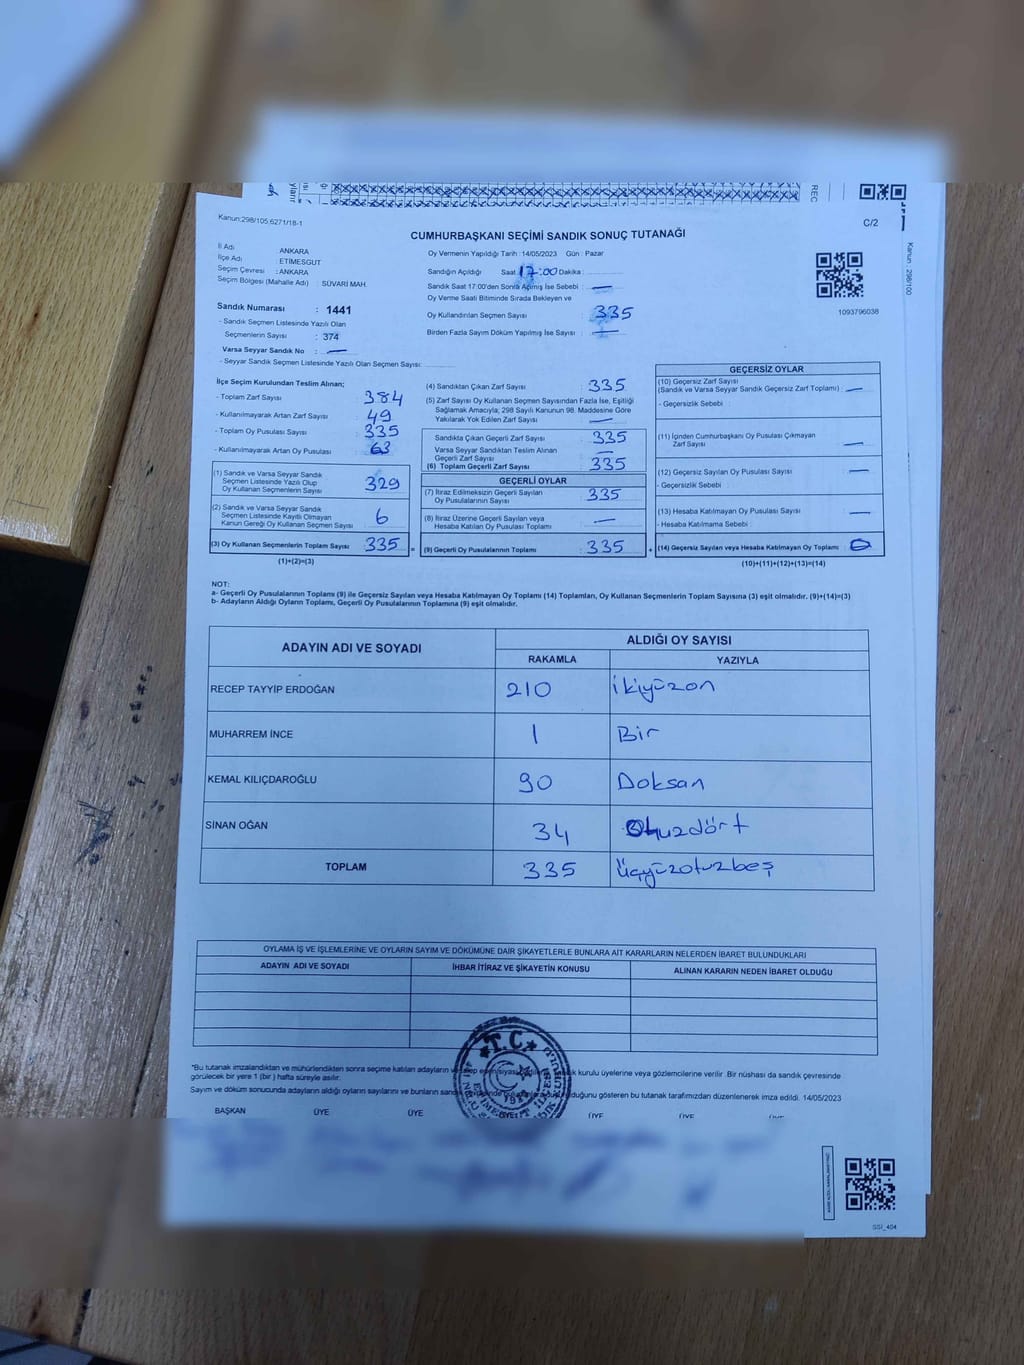 Kanun:298/105,6271/18-1
C/2
CUMHURBAŞKANI SEÇİMİ SANDIK SONUÇ TUTANAĞI
İl Adı : ANKARA
İlçe Adı : ETİMESGUT
Seçim Çevresi : ANKARA
Seçim Bölgesi (Mahalle Adı) : SÜVARİ MAH.
Sandık Numarası : 1441
- Sandık Seçmen Listesinde Yazılı Olan
Seçmenlerin Sayısı : 374
Varsa Seyyar Sandık No : —
- Seyyar Sandık Seçmen Listesinde Yazılı Olan Seçmen Sayısı:
Oy Vermenin Yapıldığı Tarih :14/05/2023 Gün : Pazar
Sandığın Açıldığı Saat 17:00 Dakika :
Sandık Saat 17:00'den Sonra Açılmış İse Sebebi : —
Oy Verme Saati Bitiminde Sırada Bekleyen ve
Oy Kullandırılan Seçmen Sayısı : 335
Birden Fazla Sayım Döküm Yapılmış İse Sayısı : —
1093796038
Kanun : 298/100
REC
İlçe Seçim Kurulundan Teslim Alınan;
- Toplam Zarf Sayısı : 384
- Kullanılmayarak Artan Zarf Sayısı : 49
- Toplam Oy Pusulası Sayısı : 335
- Kullanılmayarak Artan Oy Pusulası : 63
(1) Sandık ve Varsa Seyyar Sandık
Seçmen Listesinde Yazılı Olup
Oy Kullanan Seçmenlerin Sayısı : 329
(2) Sandık ve Varsa Seyyar Sandık
Seçmen Listesinde Kayıtlı Olmayan
Kanun Gereği Oy Kullanan Seçmen Sayısı : 6
(3) Oy Kullanan Seçmenlerin Toplam Sayısı : 335 =
(1)+(2)=(3)
(4) Sandıktan Çıkan Zarf Sayısı : 335
(5) Zarf Sayısı Oy Kullanan Seçmen Sayısından Fazla İse, Eşitliği
Sağlamak Amacıyla; 298 Sayılı Kanunun 98. Maddesine Göre
Yakılarak Yok Edilen Zarf Sayısı : —
Sandıkta Çıkan Geçerli Zarf Sayısı : 335
Varsa Seyyar Sandıktan Teslim Alınan
Geçerli Zarf Sayısı : —
(6) Toplam Geçerli Zarf Sayısı : 335
GEÇERLİ OYLAR
(7) İtiraz Edilmeksizin Geçerli Sayılan
Oy Pusulalarının Sayısı : 335
(8) İtiraz Üzerine Geçerli Sayılan veya
Hesaba Katılan Oy Pusulası Toplamı : —
(9) Geçerli Oy Pusulalarının Toplamı : 335 +
GEÇERSİZ OYLAR
(10) Geçersiz Zarf Sayısı
(Sandık ve Varsa Seyyar Sandık Geçersiz Zarf Toplamı) : —
- Geçersizlik Sebebi :
(11) İçinden Cumhurbaşkanı Oy Pusulası Çıkmayan
Zarf Sayısı : —
(12) Geçersiz Sayılan Oy Pusulası Sayısı : —
- Geçersizlik Sebebi :
(13) Hesaba Katılmayan Oy Pusulası Sayısı : —
- Hesaba Katılmama Sebebi :
(14) Geçersiz Sayılan veya Hesaba Katılmayan Oy Toplamı : 0
(10)+(11)+(12)+(13)=(14)
NOT:
a- Geçerli Oy Pusulalarının Toplamı (9) ile Geçersiz Sayılan veya Hesaba Katılmayan Oy Toplamı (14) Toplamları, Oy Kullanan Seçmenlerin Toplam Sayısına (3) eşit olmalıdır. (9)+(14)=(3)
b- Adayların Aldığı Oyların Toplamı, Geçerli Oy Pusulalarının Toplamına (9) eşit olmalıdır.
ADAYIN ADI VE SOYADI ALDIĞI OY SAYISI
RAKAMLA YAZIYLA
RECEP TAYYİP ERDOĞAN 210 İkiyüzon
MUHARREM İNCE 1 Bir
KEMAL KILIÇDAROĞLU 90 Doksan
SİNAN OĞAN 34 Otuzdört
TOPLAM 335 Üçyüzotuzbeş
OYLAMA İŞ VE İŞLEMLERİNE VE OYLARIN SAYIM VE DÖKÜMÜNE DAİR ŞİKAYETLERLE BUNLARA AİT KARARLARIN NELERDEN İBARET BULUNDUKLARI
ADAYIN ADI VE SOYADI İHBAR İTİRAZ VE ŞİKAYETİN KONUSU ALINAN KARARIN NEDEN İBARET OLDUĞU
*Bu tutanak imzalandıktan ve mühürlendikten sonra seçime katılan adayların kurulu üyelerine veya gözlemcilerine verilir. Bir nüshası da sandık çevresinde
görülecek bir yere 1 (bir) hafta süreyle asılır.
Sayım ve döküm sonucunda adayların aldığı oyların sayılarını ve bunların gösteren bu tutanak tarafımızdan düzenlenerek imza edildi. 14/05/2023
T.C.
BAŞKAN ÜYE ÜYE ÜYE ÜYE ÜYE
SSİ_404